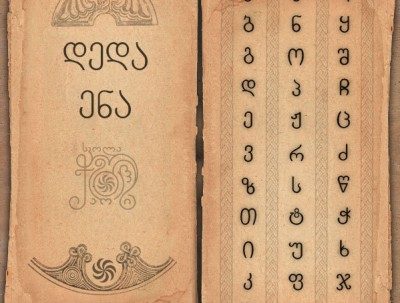 დედა
ენა
ბ ნ ყ
გ ო შ
დ პ ჩ
ე ჟ ც
ვ რ ძ
ზ ს წ
თ ტ ჭ
ი უ ხ
კ ფ ჯ